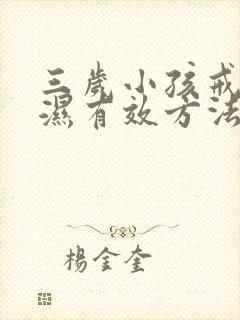 三歲小孩戒
濕有效方法
楊金奎